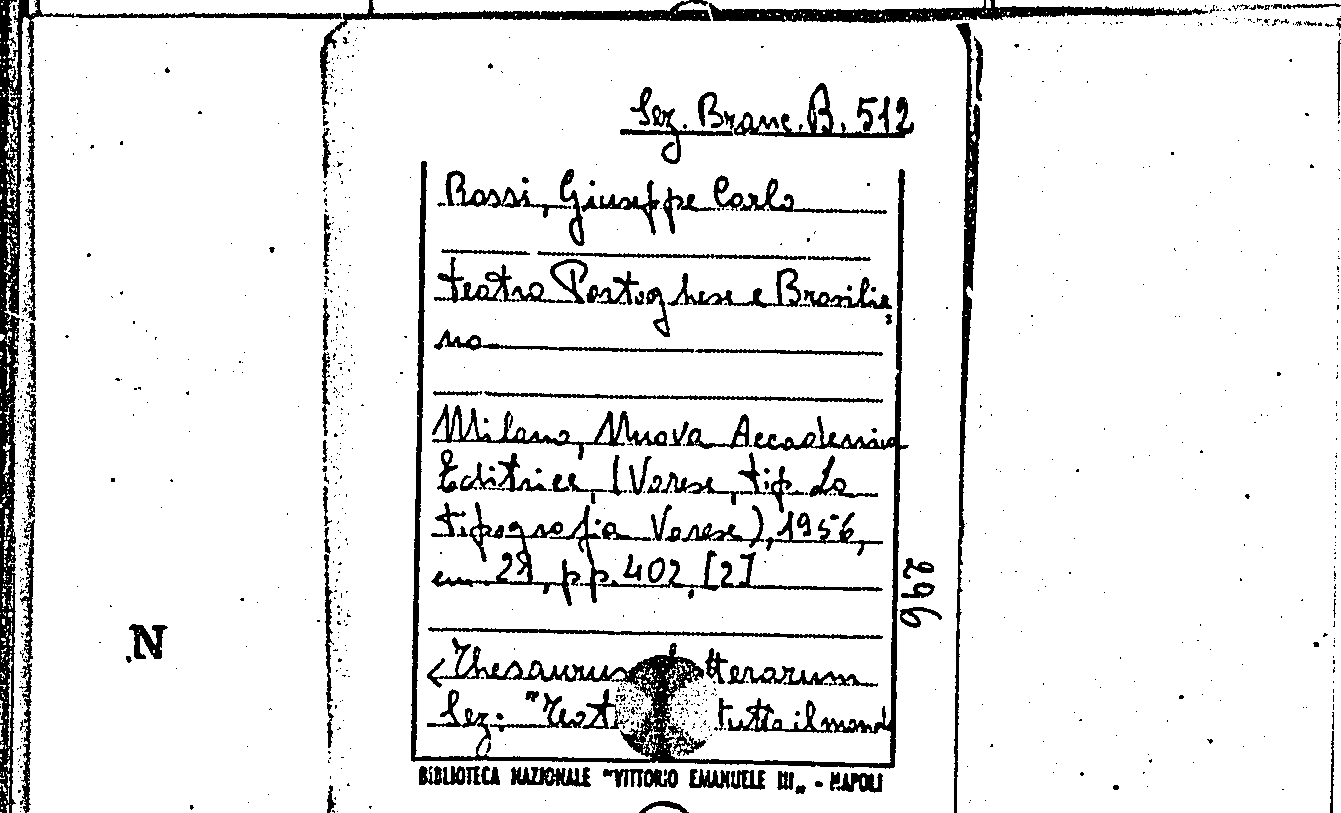 Sez. Branc. B. 512
Rossi, Giuseppe Carlo
teatro Portoghese e Brasilia=
no
Milano, Nuova Accademia
Editrice, (Varese, tip. La
tipografia Varese), 1956,
cm 21, pp. 402, [2]
296
N
<Thesaurus litterarum
Sez: "Teat tutto il mondo
BIBLIOTECA NAZIONALE "VITTORIO EMANUELE III„ - NAPOLI